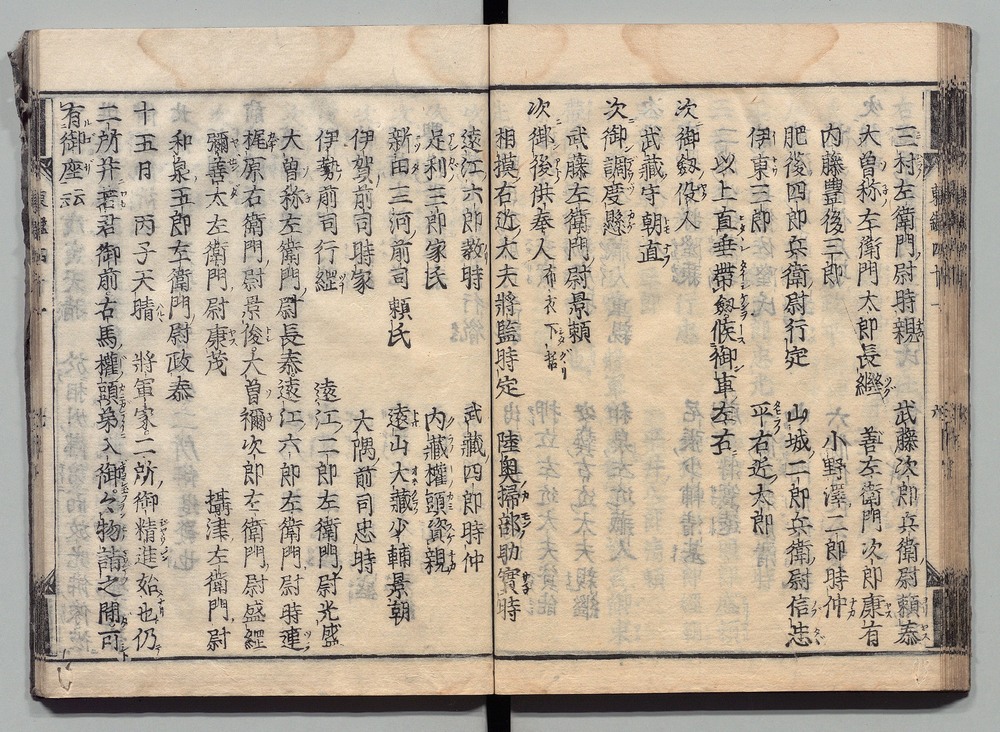 三村左衛門尉時親　武藤次郎兵衛尉頼泰
大曽祢左衛門太郎長継　善左衛門次郎康有
内藤豊後三郎　小野澤二郎時仲
肥後四郎兵衛尉行定　山城二郎兵衛尉信忠
伊東三郎　平右近太郎
以上直垂帯劔候御車左右
次御劔役人
武藏守朝直
次御調度懸
武藤左衛門尉景頼
次御後供奉人布衣下括
相摸右近大夫將監時定　陸奥掃部助實時
遠江六郎教時　武藏四郎時仲
足利三郎家氏　内藏權頭資親
新田三河前司頼氏　遠山大藏少輔景朝
伊賀前司時家　大隅前司忠時
伊勢前司行綱　遠江二郎左衛門尉光盛
大曽祢左衛門尉長泰遠江六郎左衛門尉時連
梶原右衛門尉景俊大曽禰次郎左衛門尉盛經
彌善太左衛門尉康茂　攝津左衛門尉
和泉五郎左衛門尉政泰
十五日　丙子天晴　將軍家二所御精進始也仍
二所并若君御前右馬權頭第入御々物詣之間可
有御座云云